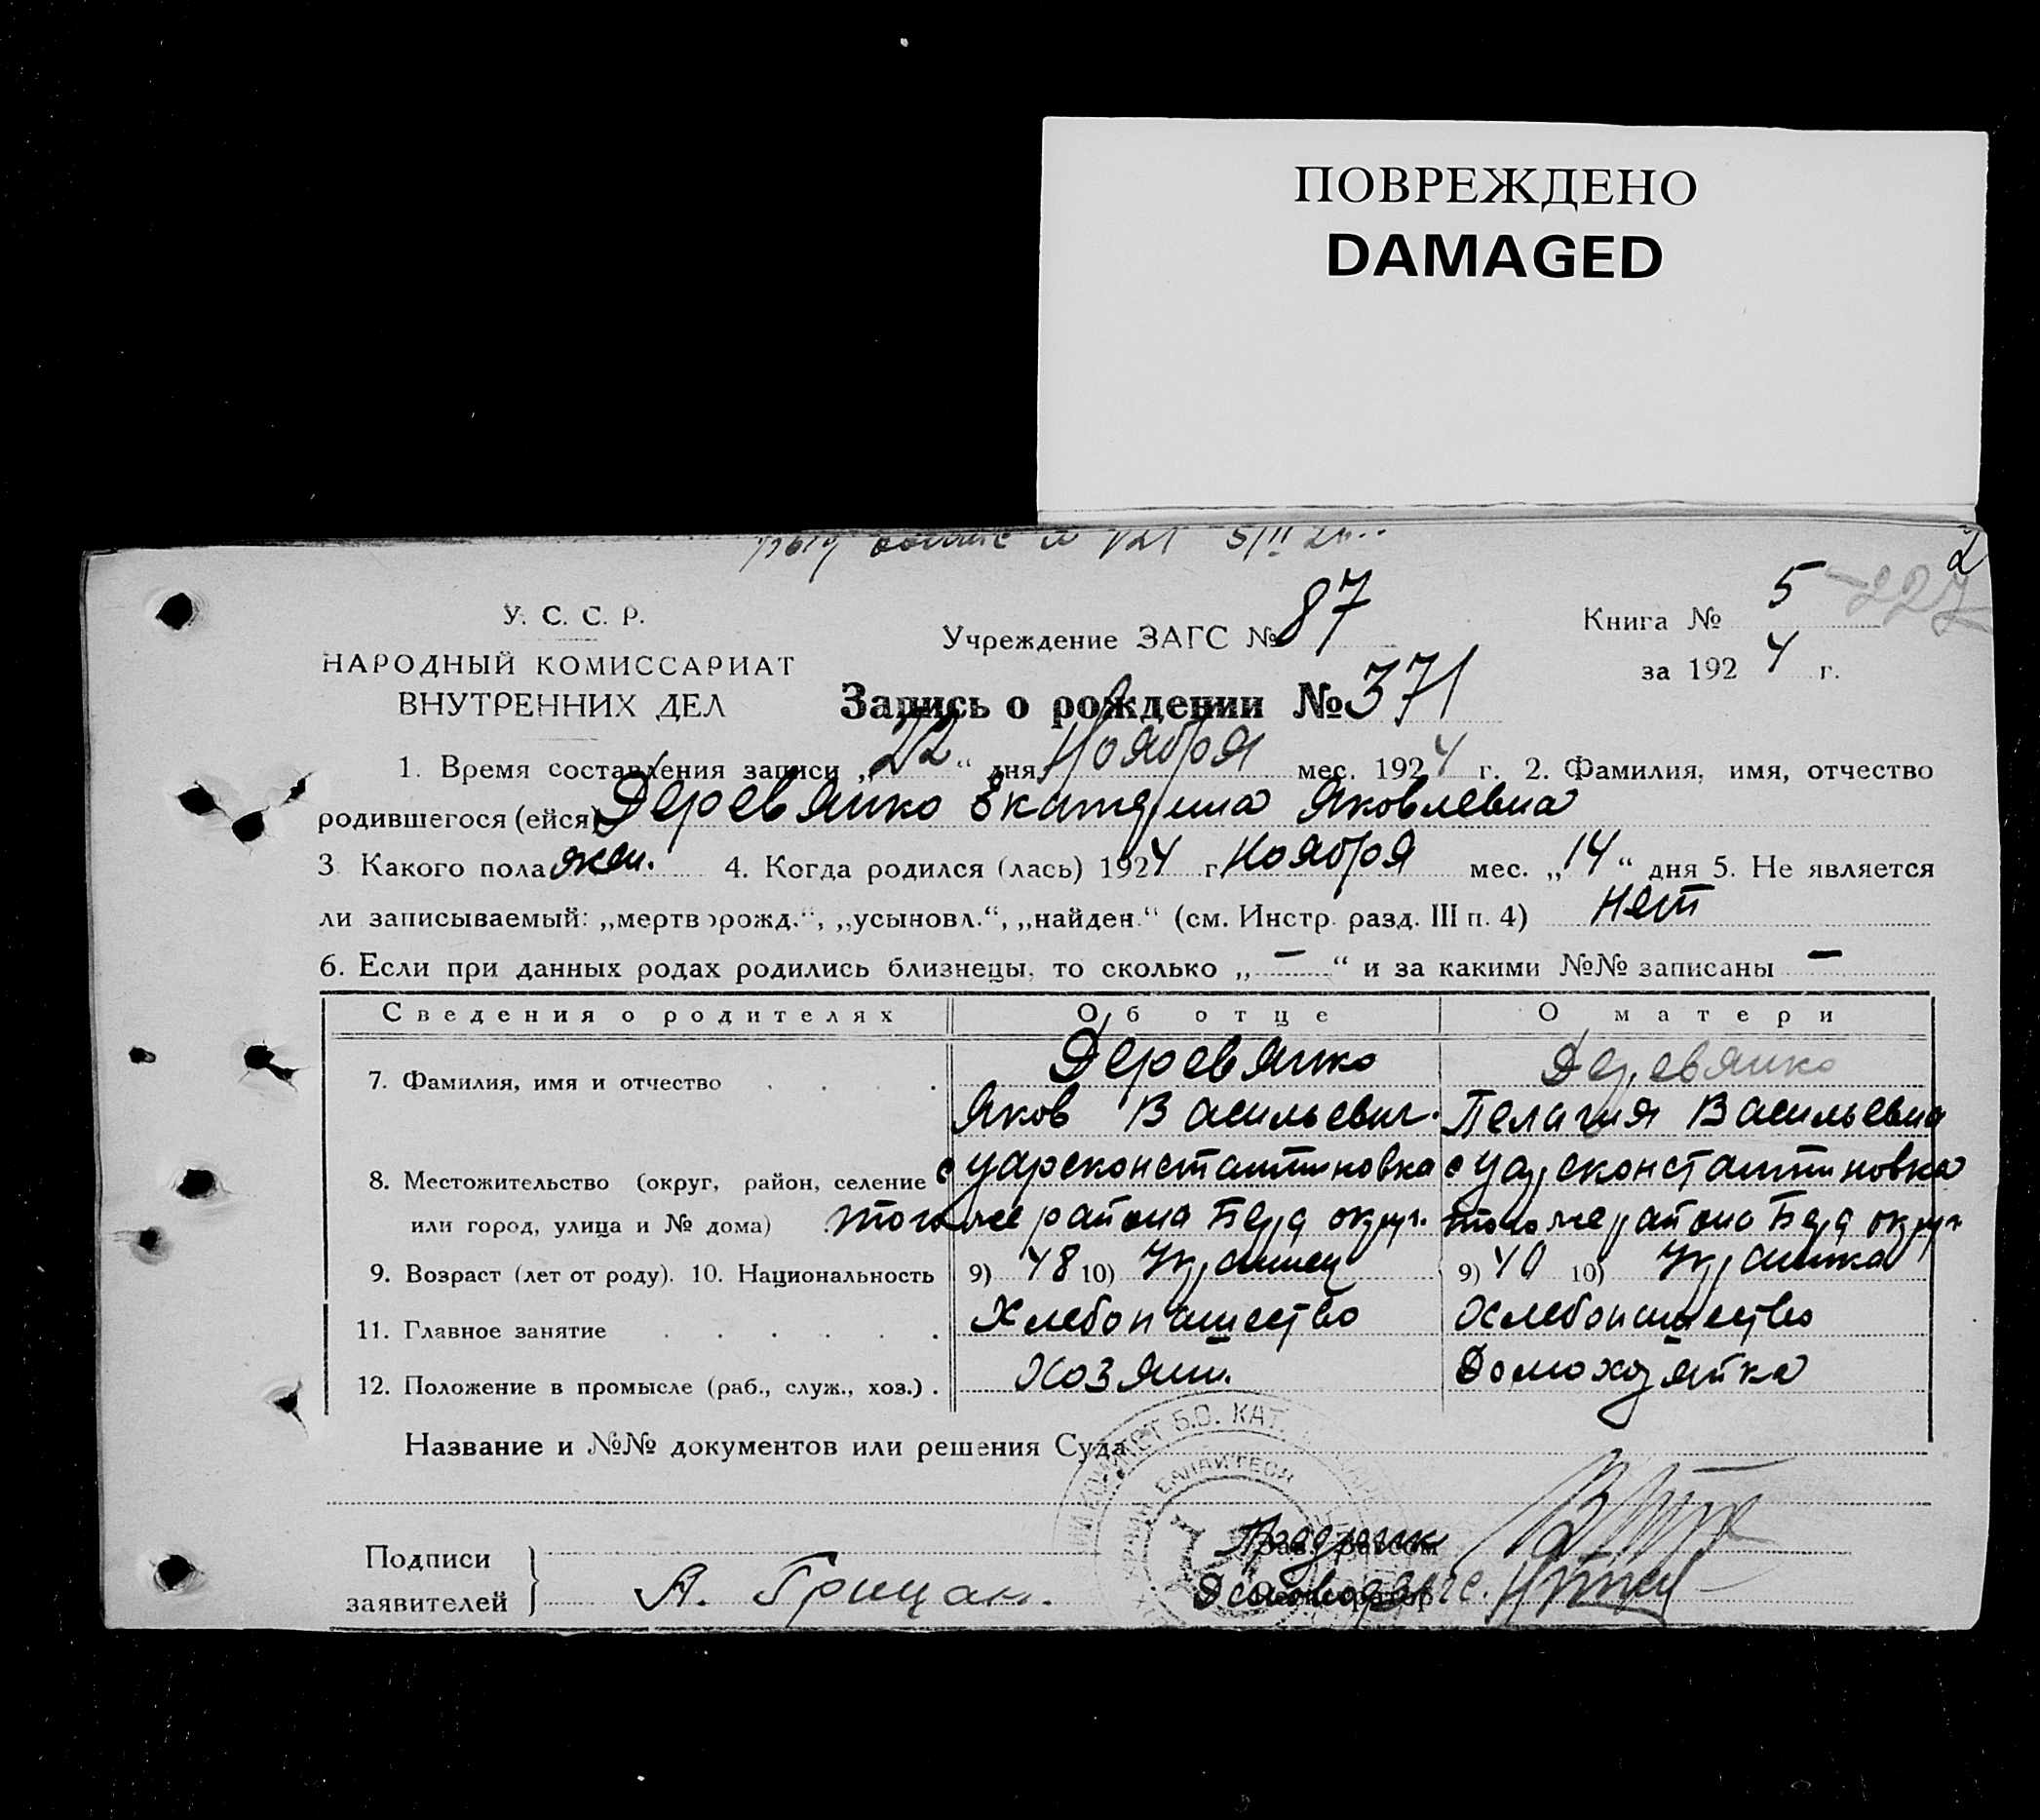 ПОВРЕЖДЕНО
DAMAGED
5/II
2
У. С. С. Р.
НАРОДНЫЙ КОМИССАРИАТ
ВНУТРЕННИХ ДЕЛ
Учреждение ЗАГС № 87
Книга № 5 227
за 1924 г.
Запись о рождении № 371
1. Время составления записи „22“ дня Ноября мес. 1924 г. 2. Фамилия, имя, отчество
родившегося (ейся) Деревянко Екатерина Яковлевна
3. Какого пола жен. 4. Когда родился (лась) 1924 г. Ноября мес. „14“ дня 5. Не является
ли записываемый: „мертворожд.“, „усыновл.“, „найден.“ (см. Инстр. разд. III п. 4) Нет
6. Если при данных родах родились близнецы, то сколько „—“ и за какими №№ записаны —
Сведения о родителях Об отце О матери
7. Фамилия, имя и отчество Деревянко Деревянко
Яков Васильевич. Пелагия Васильевна
8. Местожительство (округ, район, селение с Цареконстантиновка с Цареконстантиновка
или город, улица и № дома) того же района Берд округ. того же района Берд округ
9. Возраст (лет от роду). 10. Национальность 9) 48 10) Украинец 9) 40 10) Украинка
11. Главное занятие Хлебопашество Хлебопашество
12. Положение в промысле (раб., служ., хоз.) Хозяин. Домохозяйка
Название и №№ документов или решения Суда
Подписи
заявителей А. Грицан.